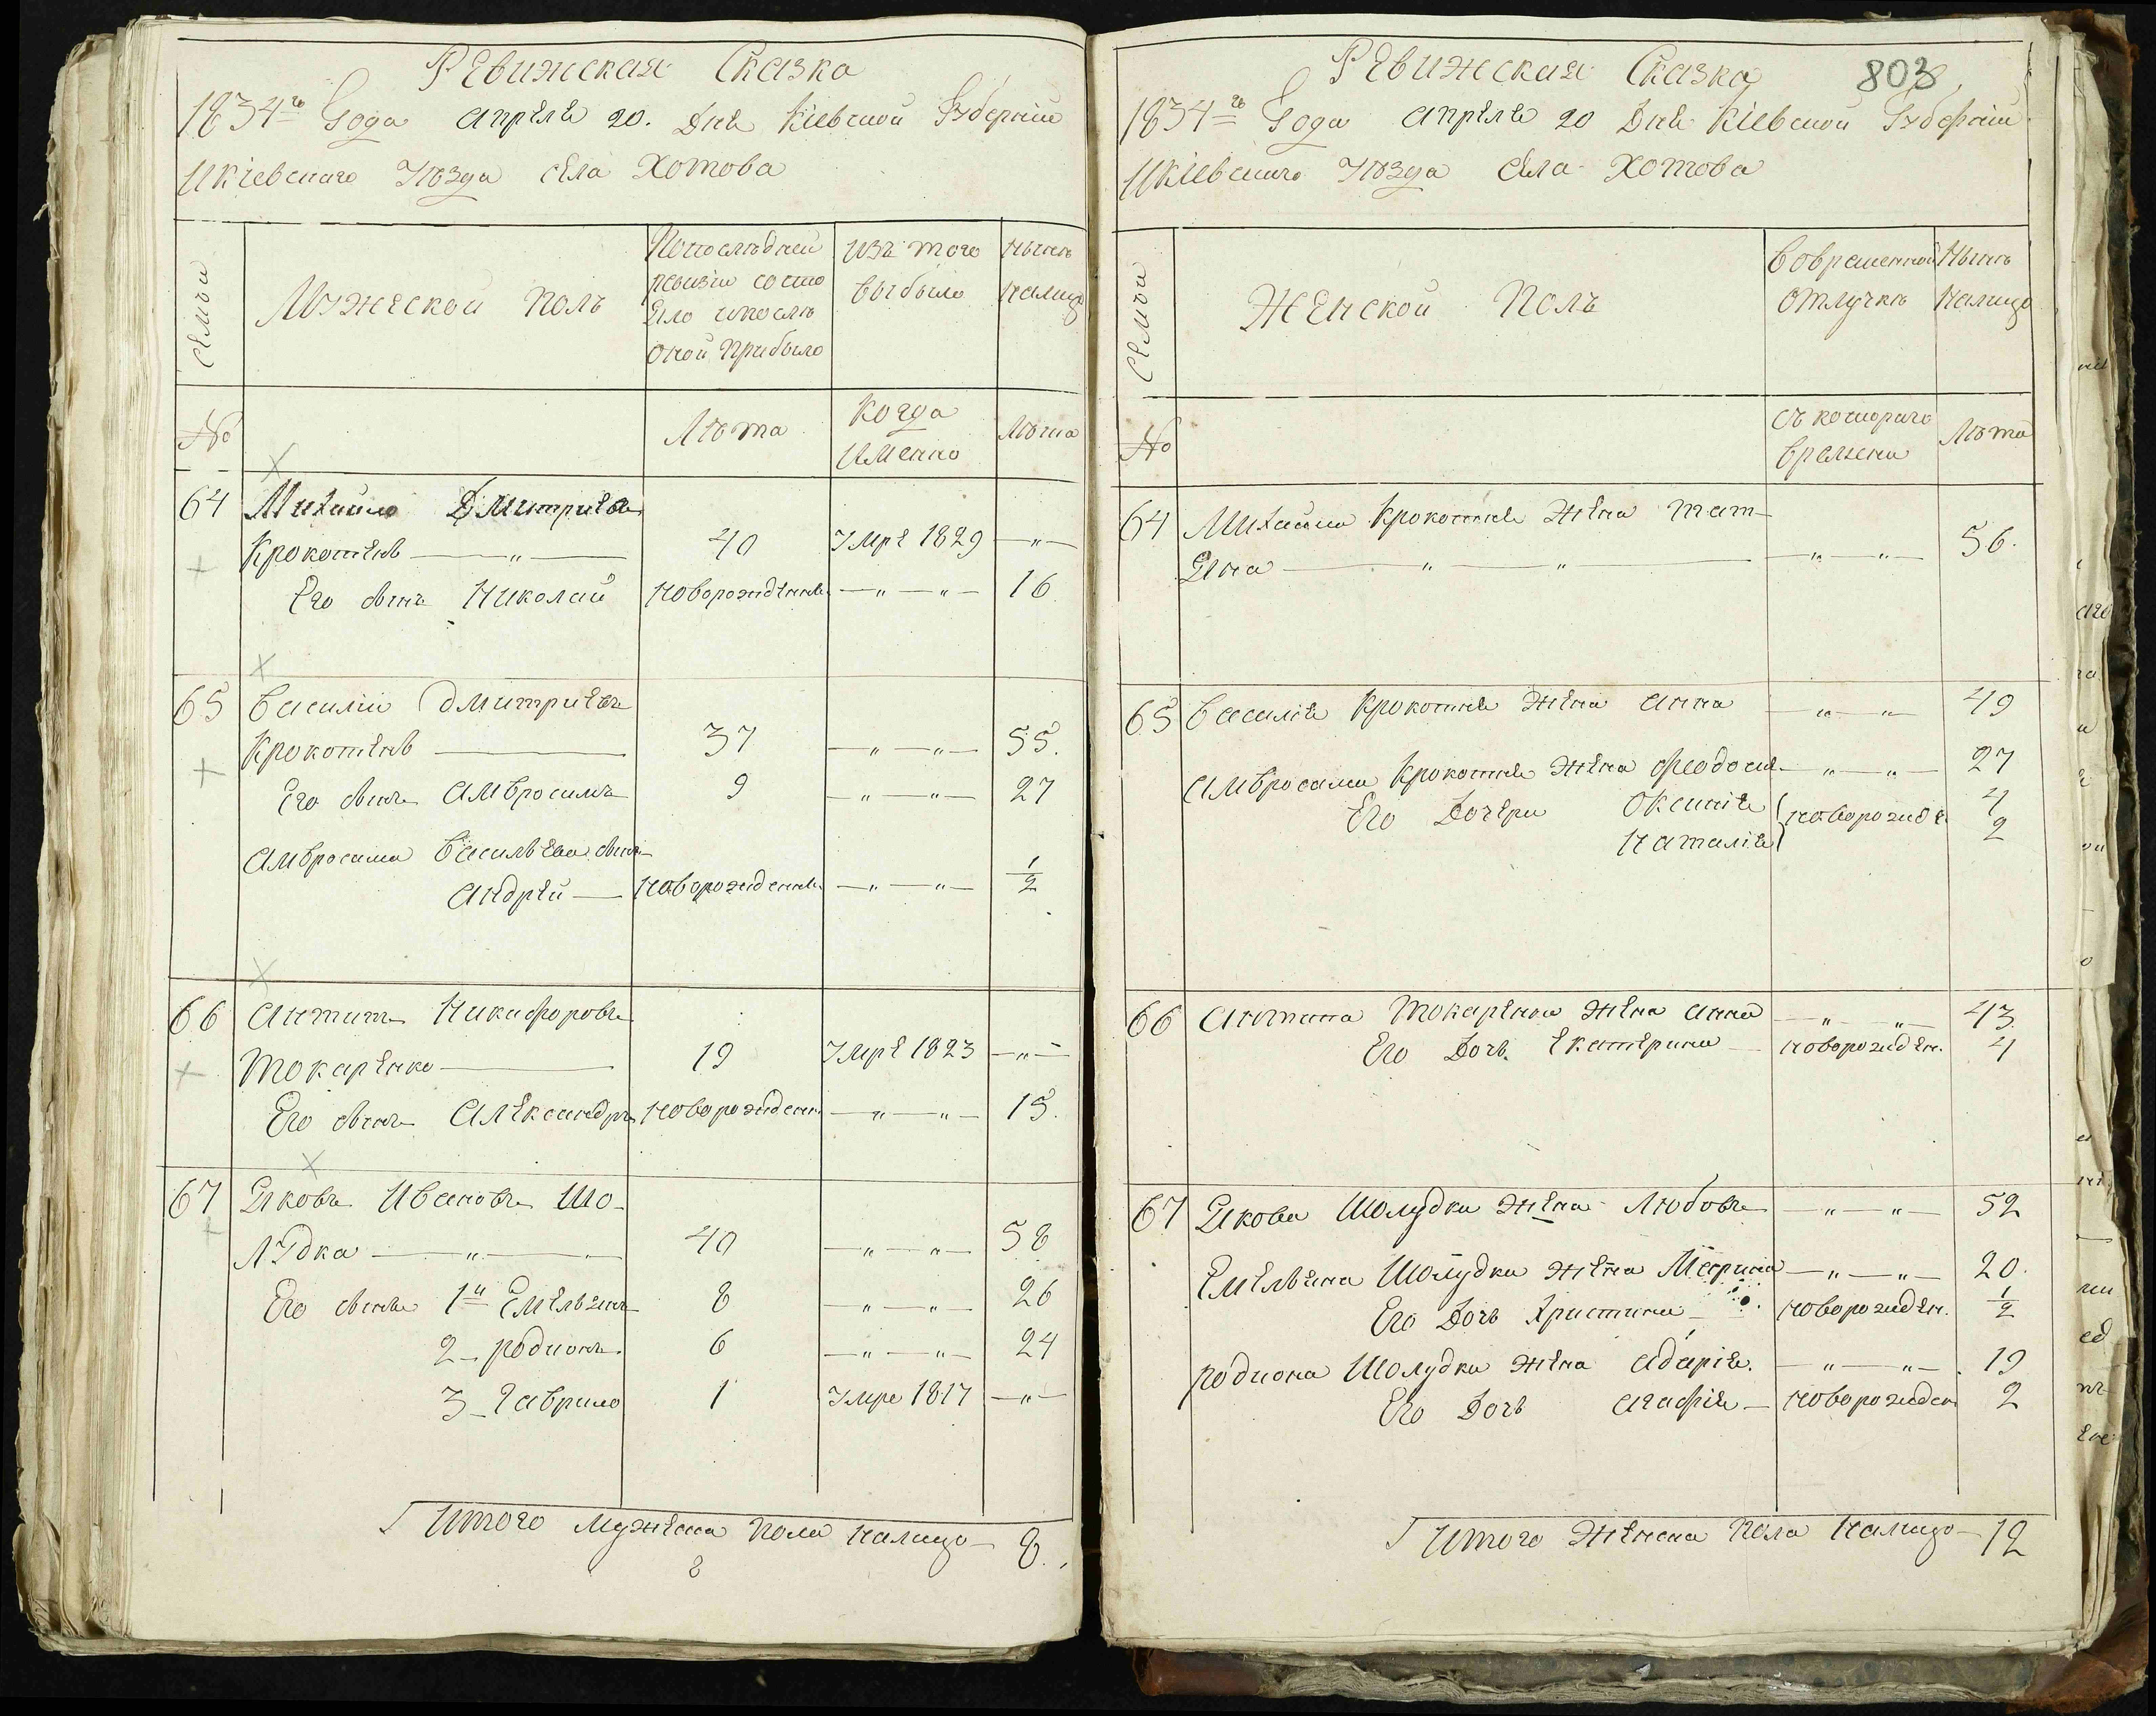 Ревижская Сказка
1834го Года Апреля 20. Дня Кіевской Губерніи
и Кіевскаго Уѣзда села Хотова
Семьи
Мужеской Полъ
По последней
ревизіи состо
яло и после
оной прибыло
изъ того
выбыло
Нынѣ
налицо
№
Лѣта
Когда
именно
Лѣта
64 Михайло Дмитріевъ
Крокотень — „ — 40 Умре 1829 — „ —
Его сынъ Николай новорожденны — „ — „ — 16
65 Василій Дмитріевъ
Крокотень — 37 — „ — „ — 55.
Его сынъ Амвросимъ 9 — „ — „ — 27
Амвросима Васильева сынъ
Андрей — новорожденны — „ — „ — 1/2
66 Антипъ Никифоровъ
Токаренко — 19 Умре 1823 — „ —
Его сынъ Александръ новорожден — „ — „ — 15.
67 Яковъ Ивановъ Шо-
лудка — „ — 40 — „ — „ — 58
Его сыны 1й Емельянъ 8 — „ — „ — 26
2 — Родионъ 6 — „ — „ — 24
3 — Гаврило 1 Умре 1817 — „ —
Итого мужеска пола налицо — 8.
8
Ревижская Сказка 803
1834го Года Апреля 20 Дня Кіевской Губерніи
и Кіевскаго Уѣзда села Хотова
Семьи
Женской Полъ
Вовременной
отлучкѣ
Нынѣ
налицо
№
съ котораго
времени
Лѣта
64 Михайла Крокотня жена Тат-
яна — „ — „ — — „ — „ — 56.
65 Василія Крокотня жена Анна — „ — „ — 49
Амвросима Крокотня жена Феодосия — „ — „ — 27
Его Дочери Оксинія новорожде 4
Наталія 2
66 Антипа Токаренка жена Анна — „ — „ — 43
Его Дочь Екатерина — новорожден. 4
67 Якова Шолудки жена Любовь — „ — „ — 52
Емельяна Шолудки жена Марина — „ — „ — 20.
Его Дочь Христина — новорожден. 1/2
Родиона Шолудки жена Адарія. — „ — „ — 19
Его Дочь Агафія — новорожден 2
Итого женска пола налицо — 12